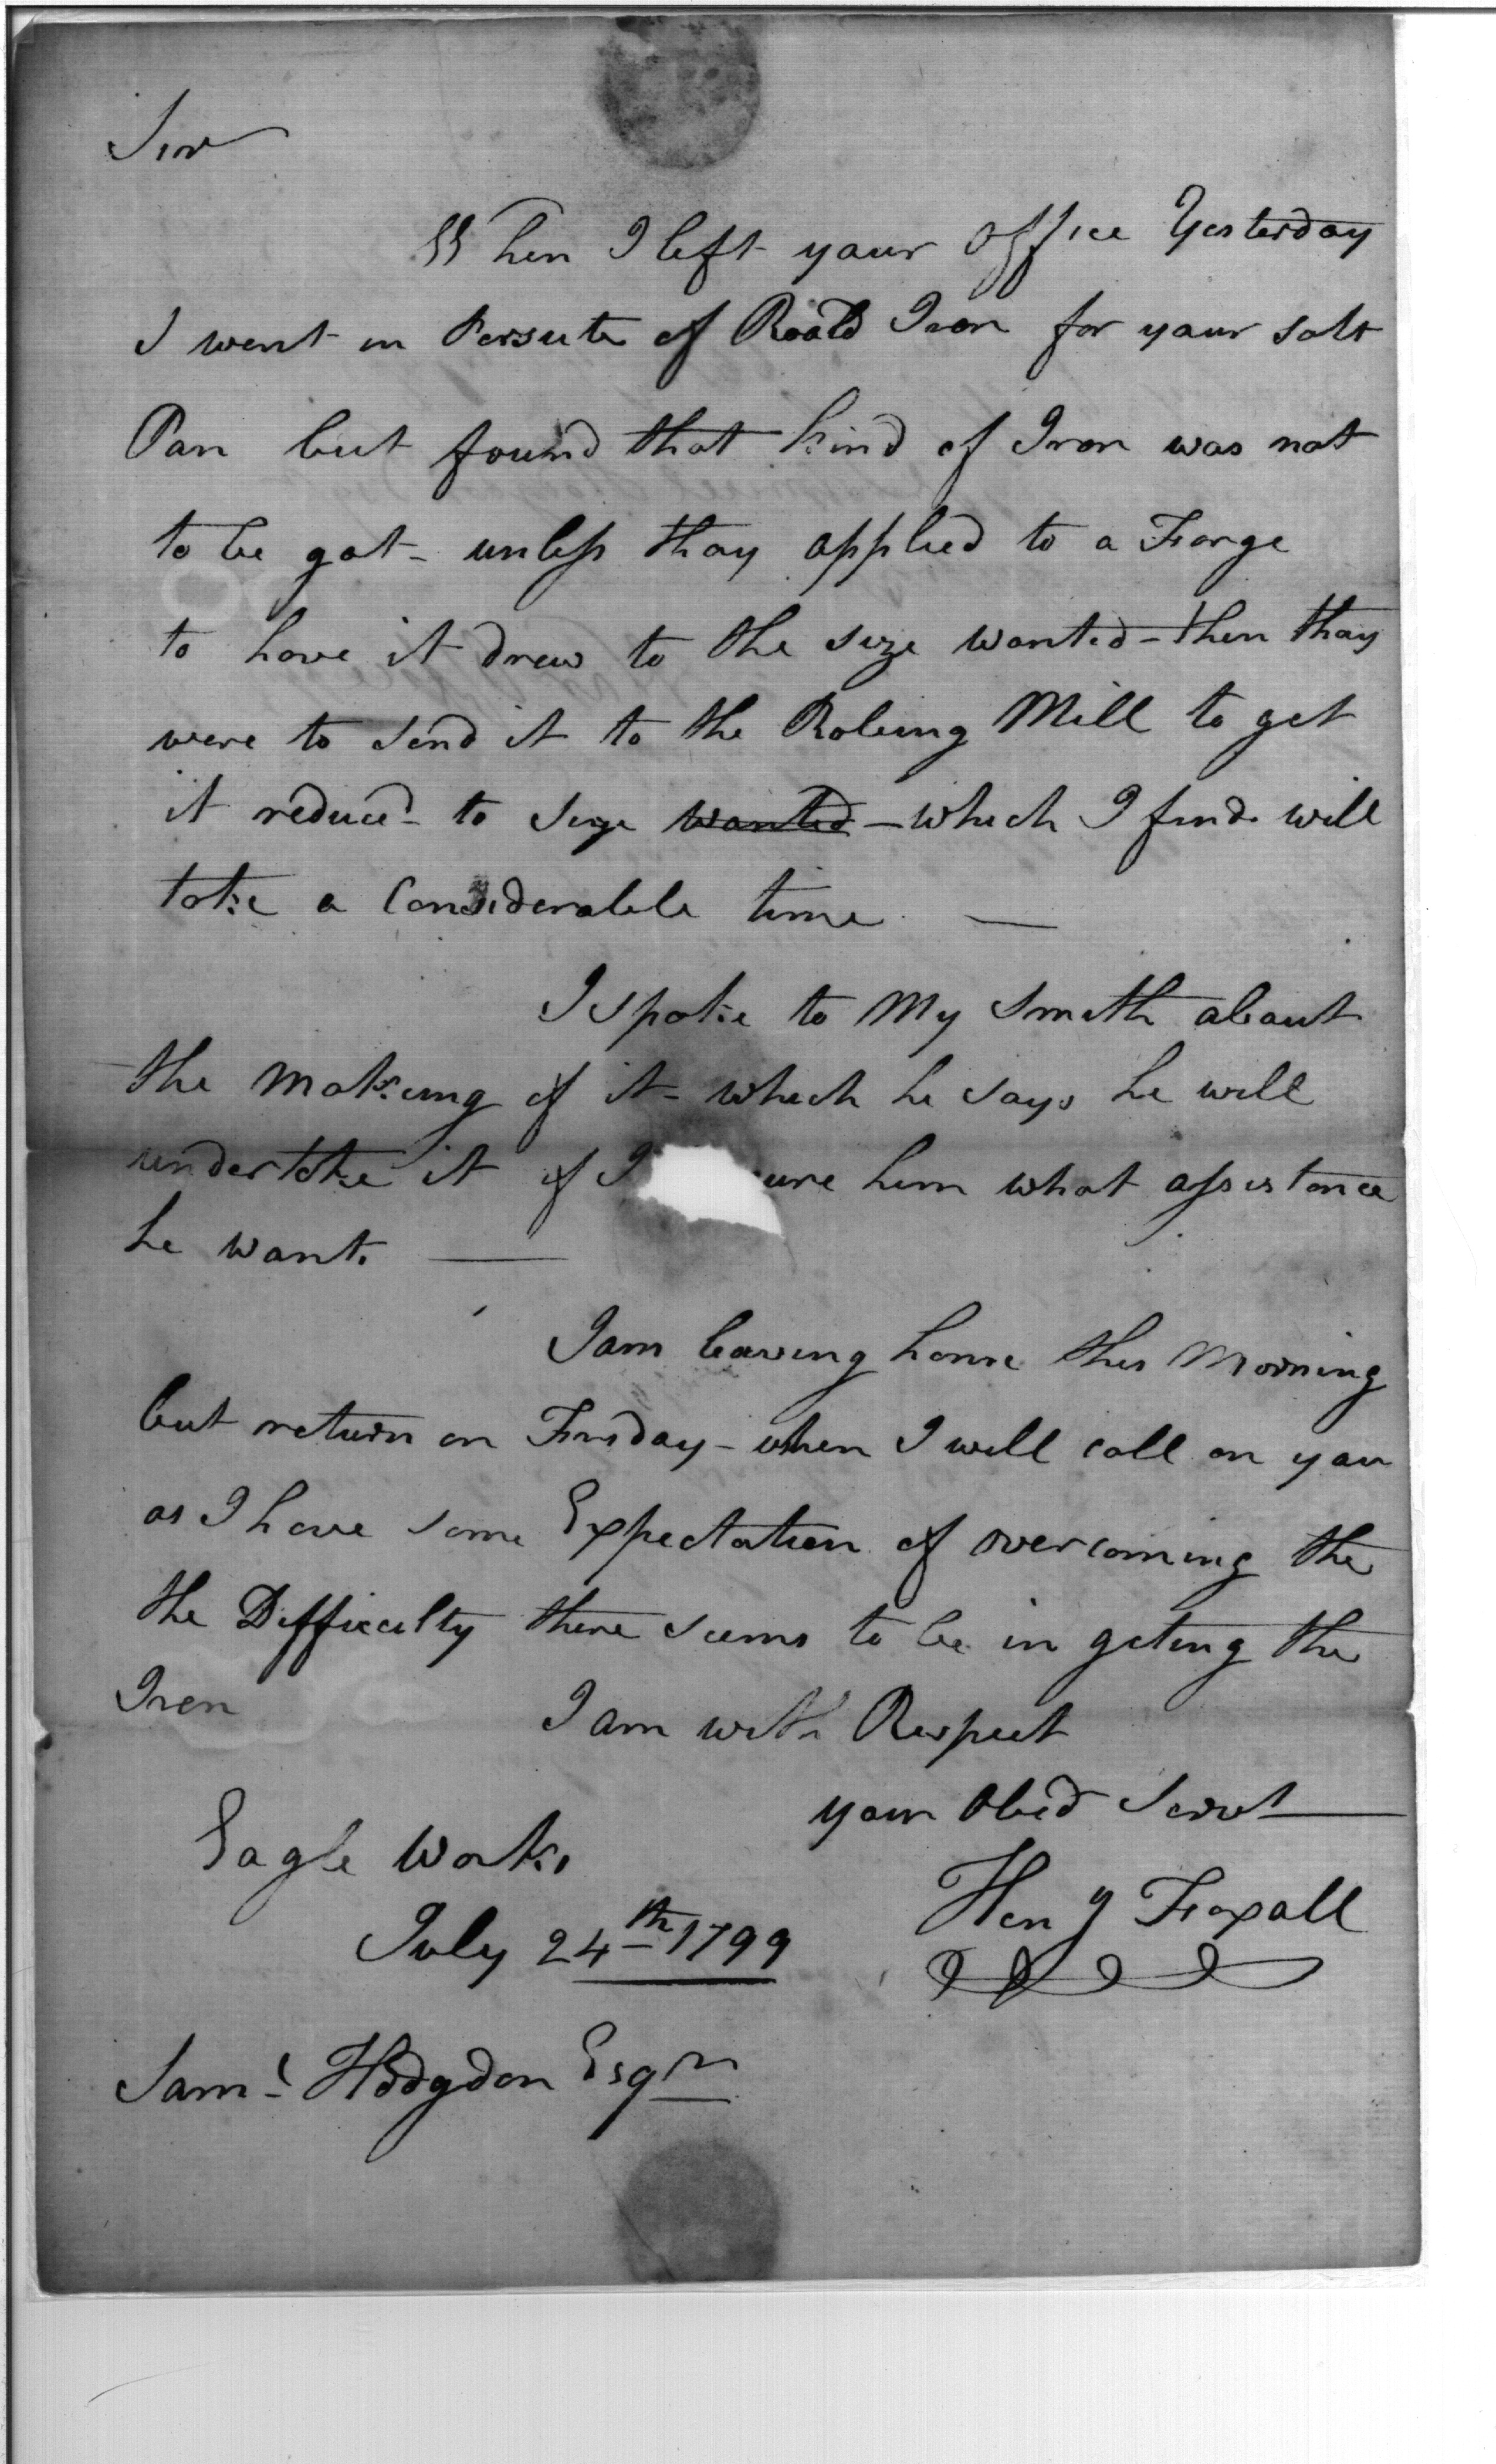 Sir
When I left your office Yesterday
I went in Persute of Roald Iron for your Salt
Pan but found that kind of Iron was not
to be got - unless thay applied to a Forge
to have it drew to the size wanted - then thay
were to send it to the Roleing Mill to get
it reduced to size wanted - which I find will
take a Considerable time —
I spoke to My Smith about
the Makeing of it - which he says he will
undertake it if I ure him what assistance
he want. —
I am leaving home this Morning
but return on Friday - when I will call on you
as I have some Expectation of overcoming the
the Difficulty there seems to be in geting the
Iron
I am with Respect
your Obed Servt
Eagle Works
Heny Foxall
July 24th 1799
Saml Hodgdon Esqr